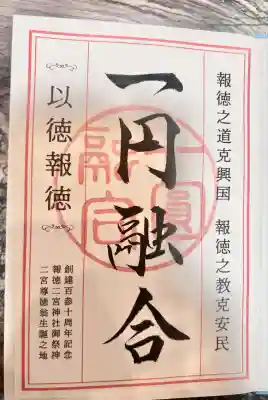 報徳之道克興国 報徳之教克安民
一円融合
以徳報徳
創建百参十周年記念
報徳二宮神社御祭神
二宮尊徳翁生誕之地
一圓融合